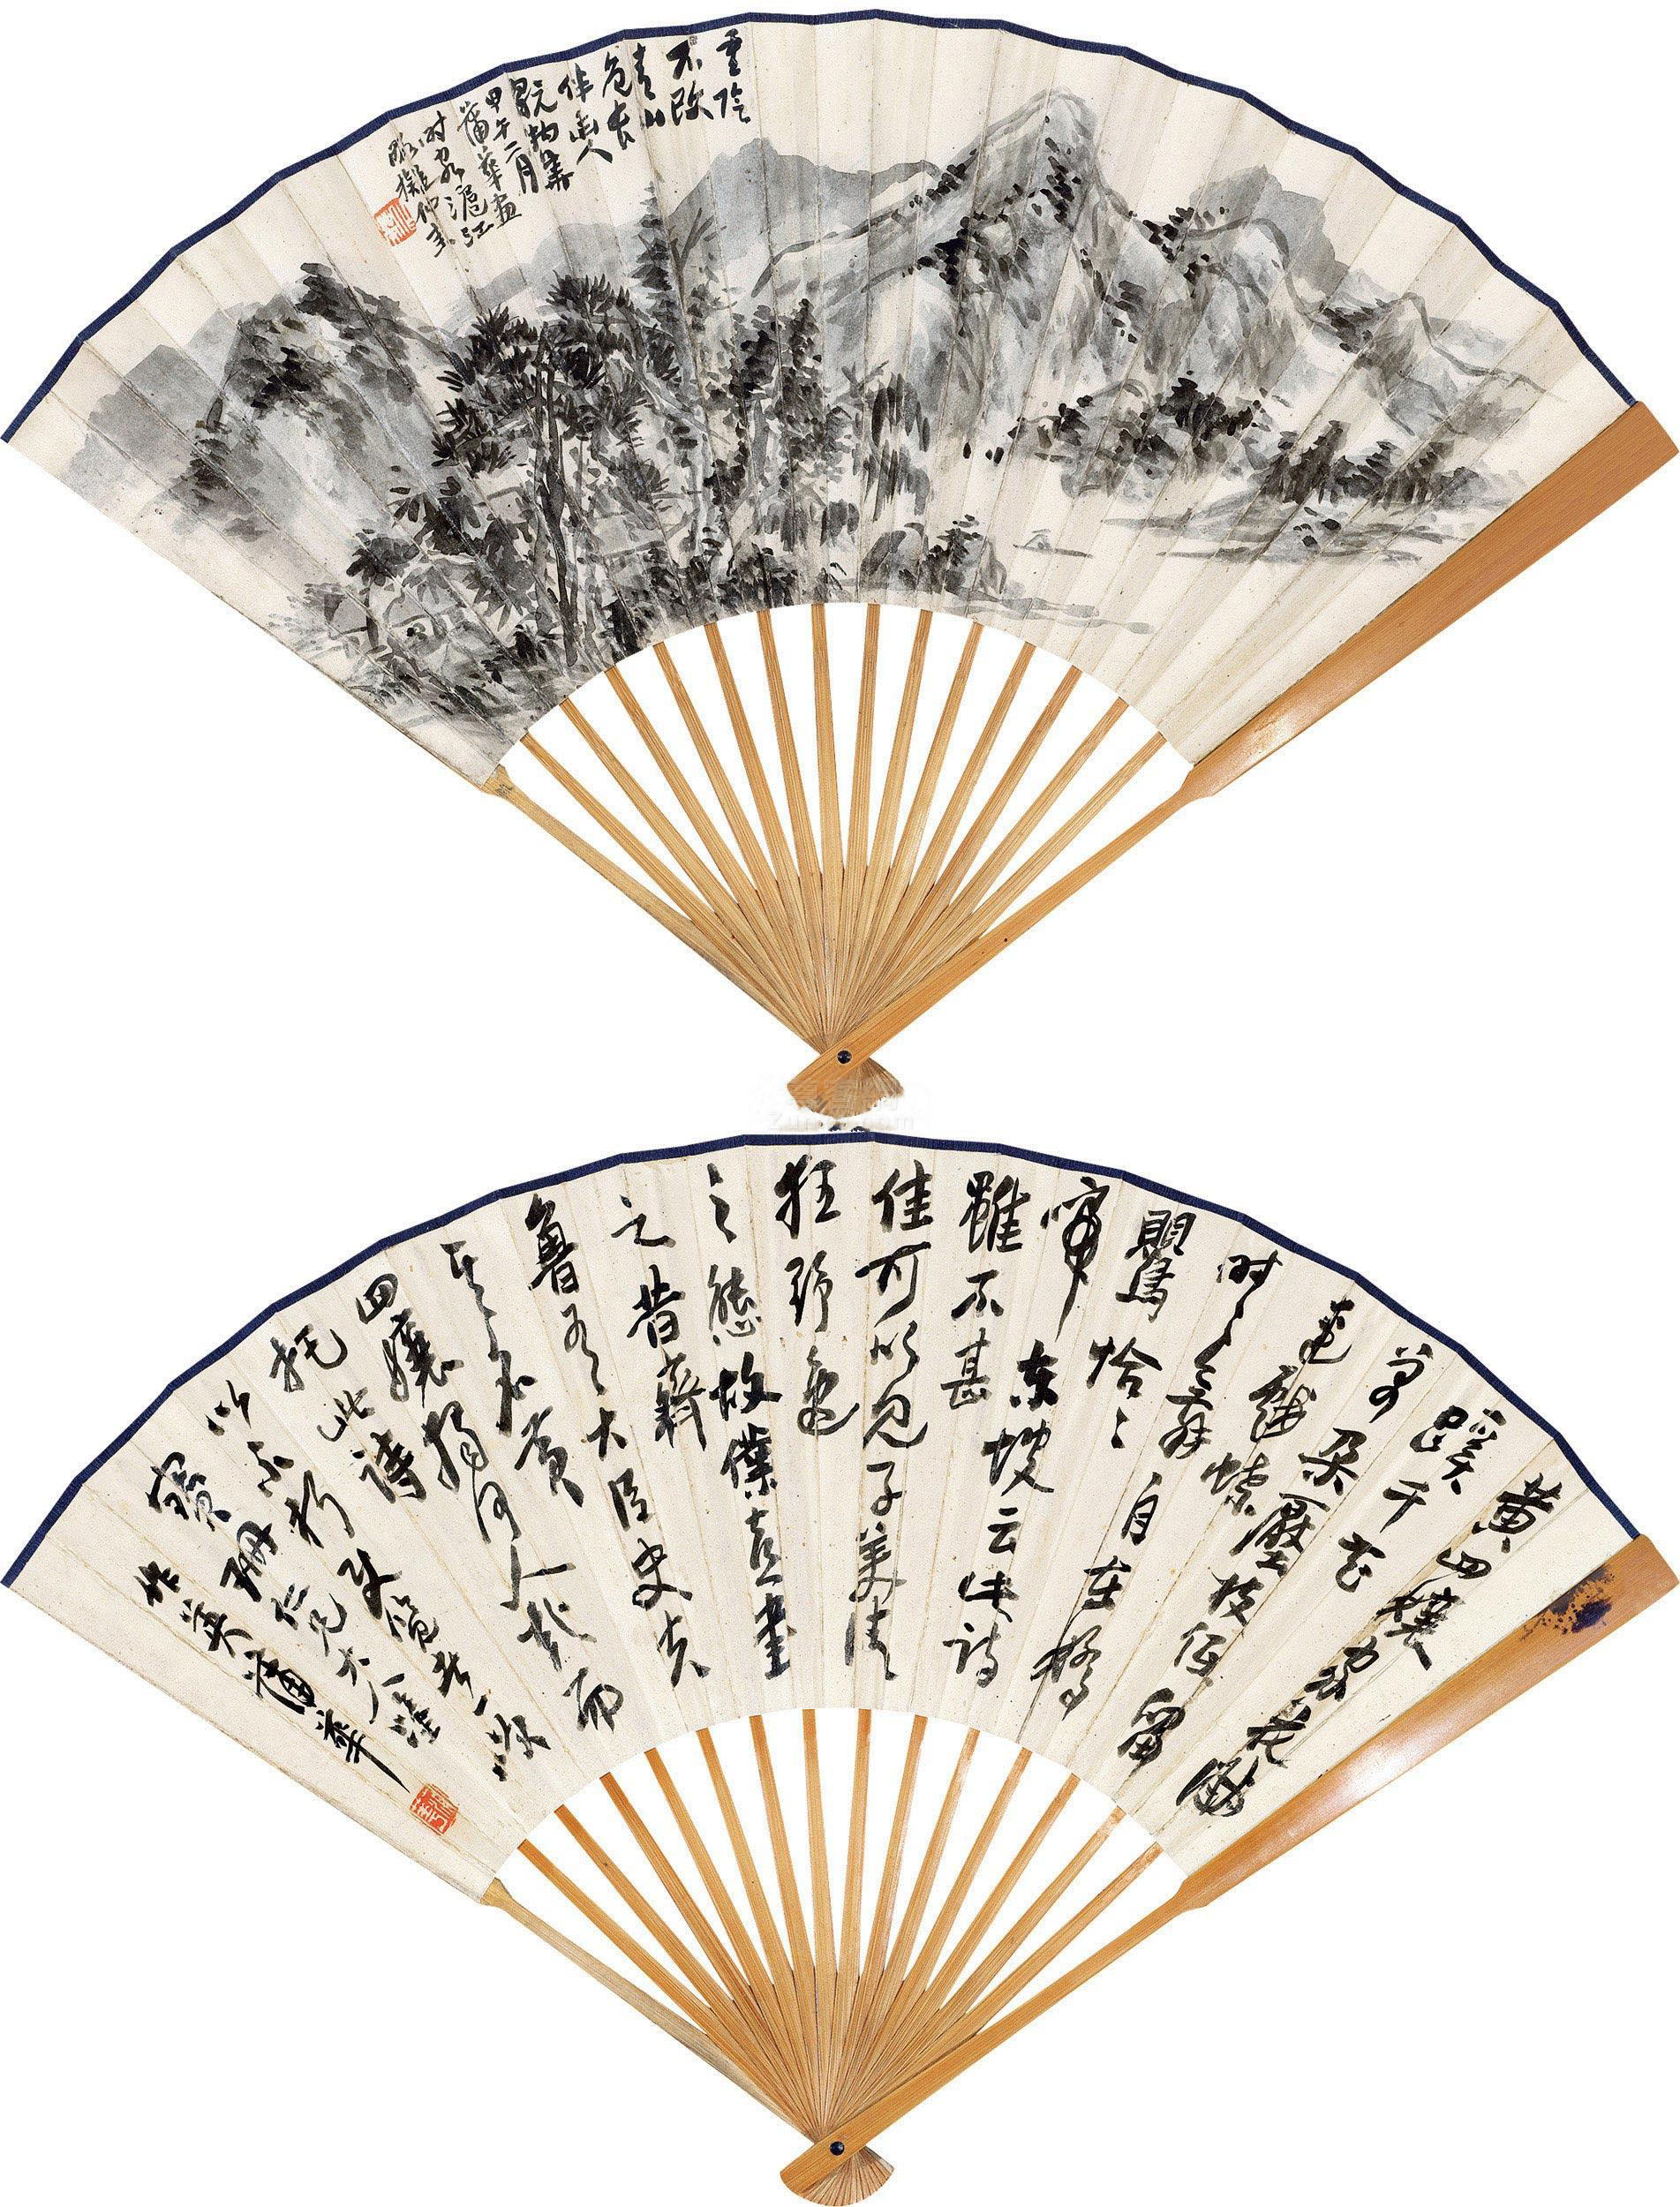 重陰
不改
青山
色長
伴幽人
翫物華
甲午二月
蒲華畫
时客滬江
黃四孃家花滿
蹊千花
萬朵壓枝低留
連戲蝶
时々舞
鸎恰々自在嬌
啼东坡云此詩
雖不甚
佳可以見子美清
狂野逸
之態故僕喜書
之昔齊
魯有大臣史失
其名黃
四孃獨何人哉而
托此詩
以不朽可使覽者一笑
寶珊仁兄大人雅
作英蒲華